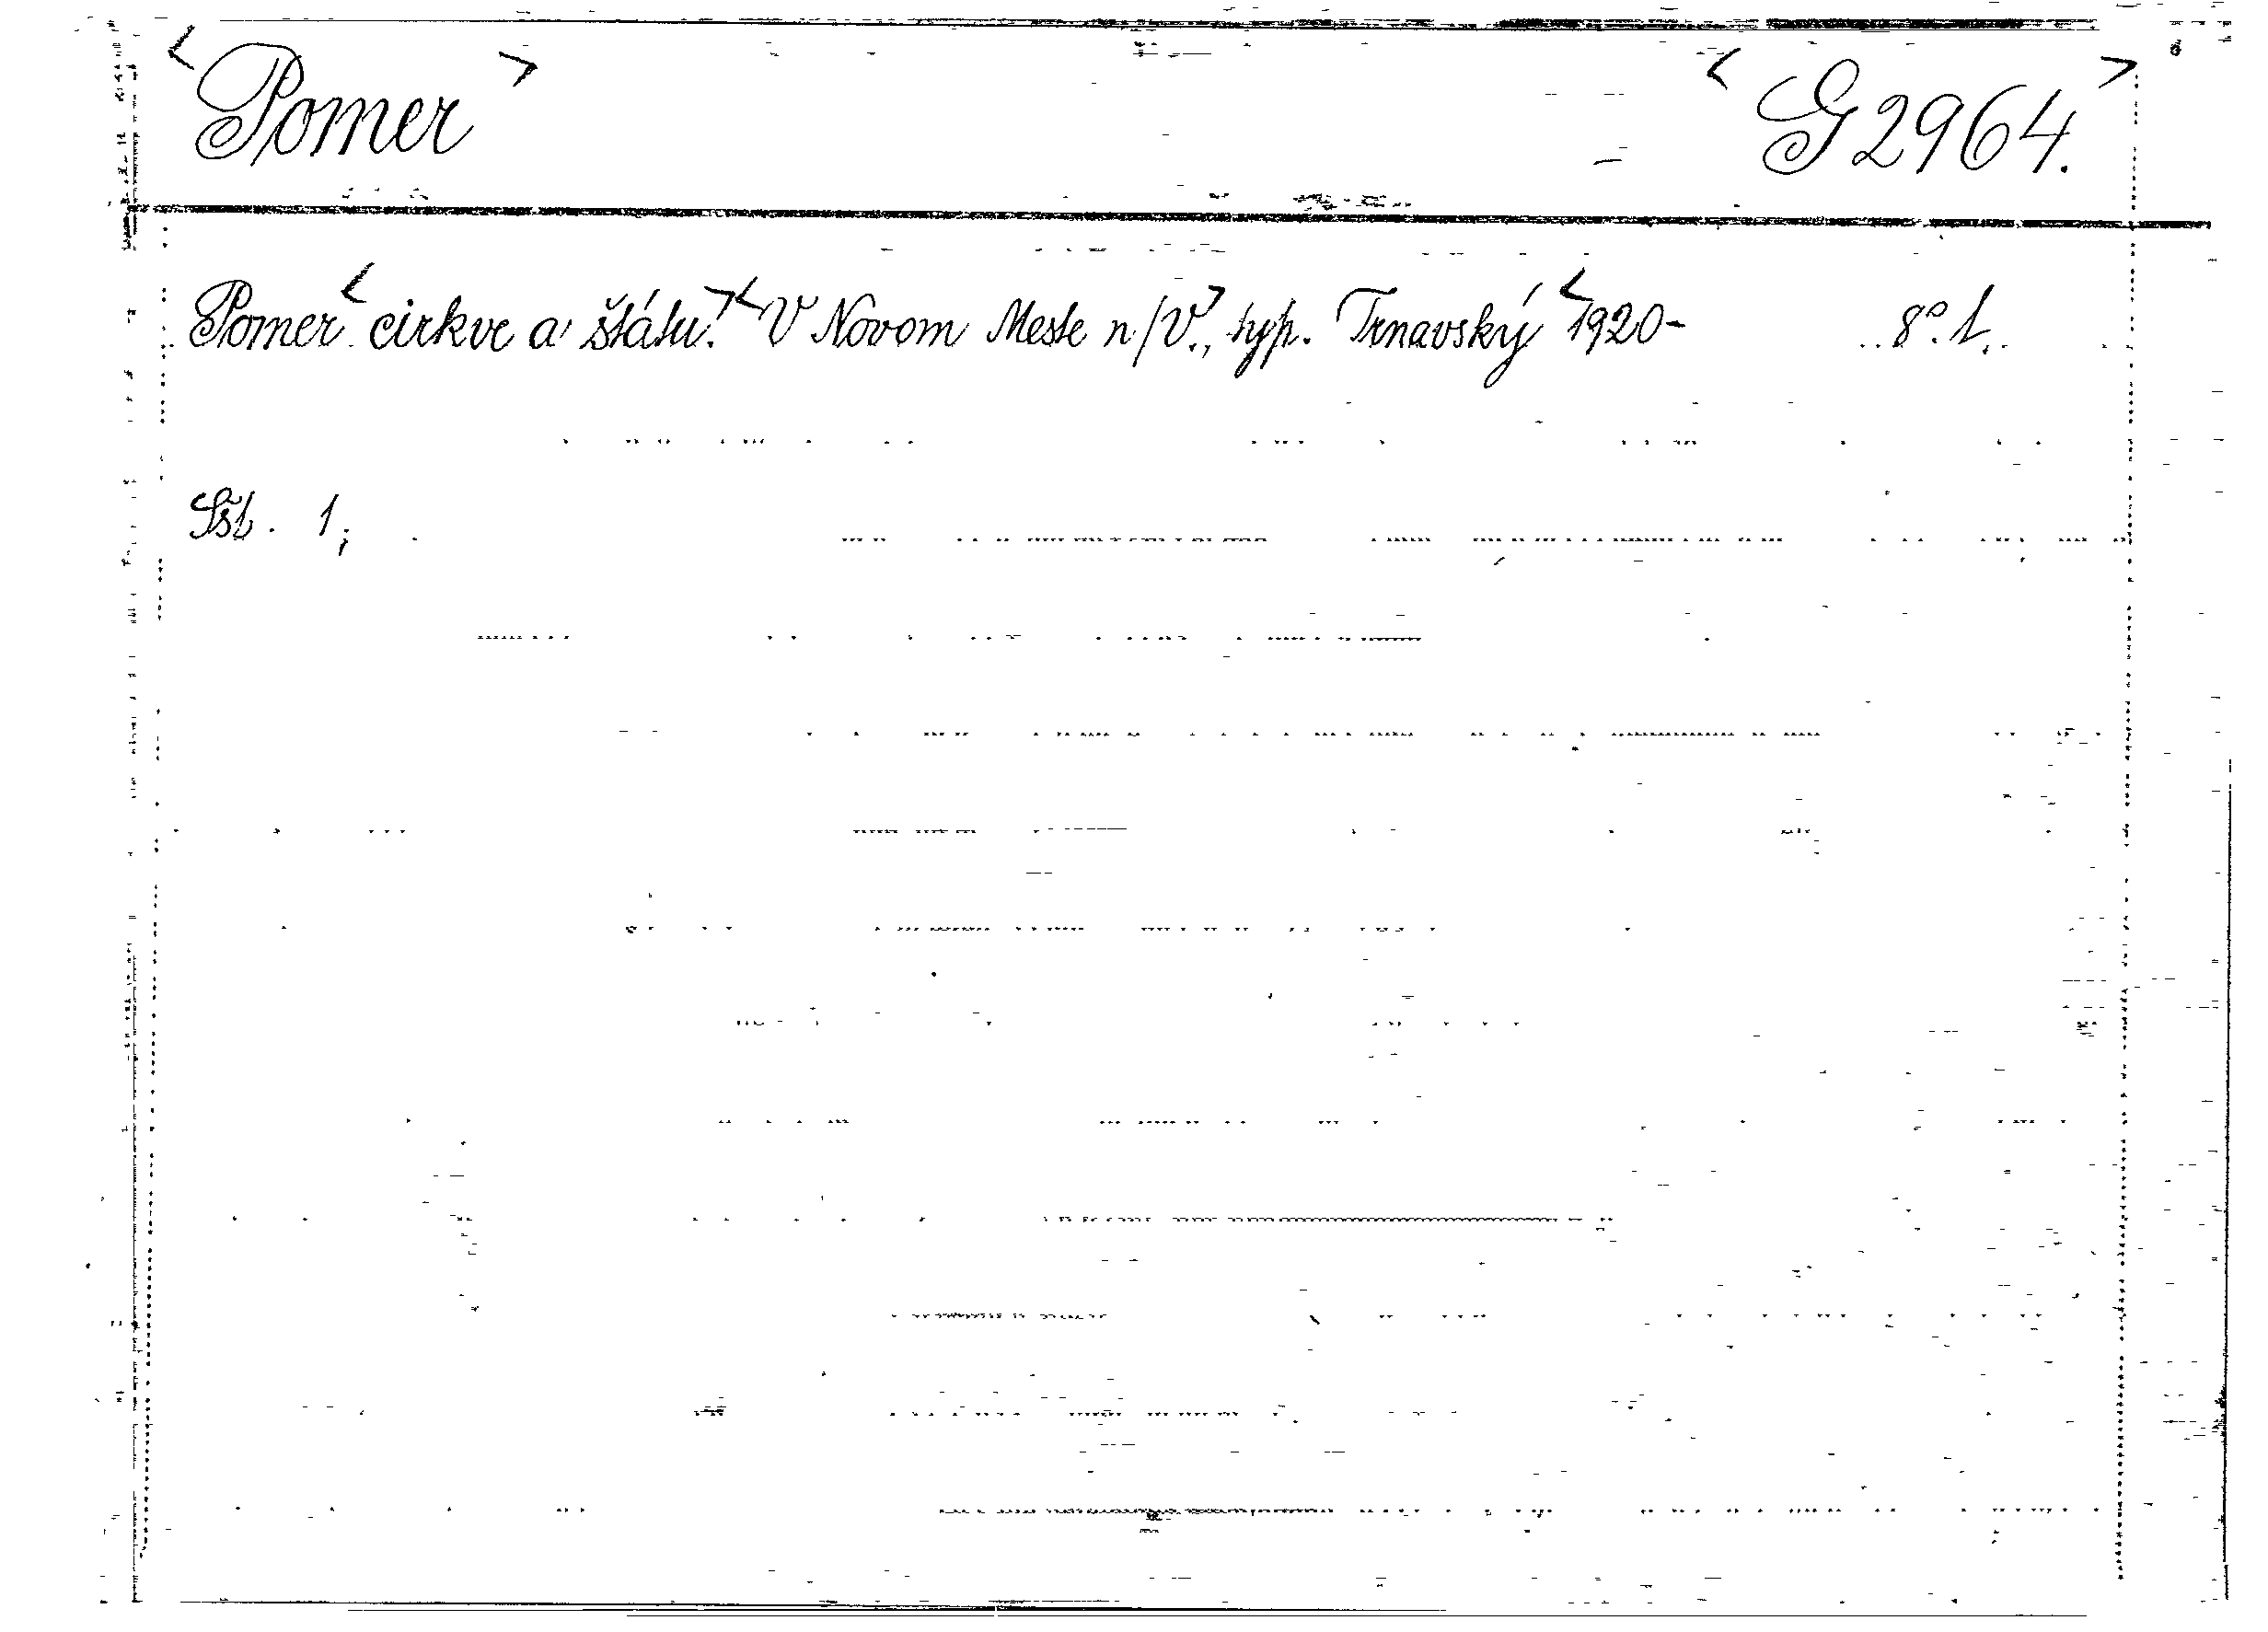 < Pomer > < G 2964. >
Pomer < cirkve a štátu. > < V Novom Meste n/V., > typ. Trnavský < 1920- 8°. 1.
Šst. 1;